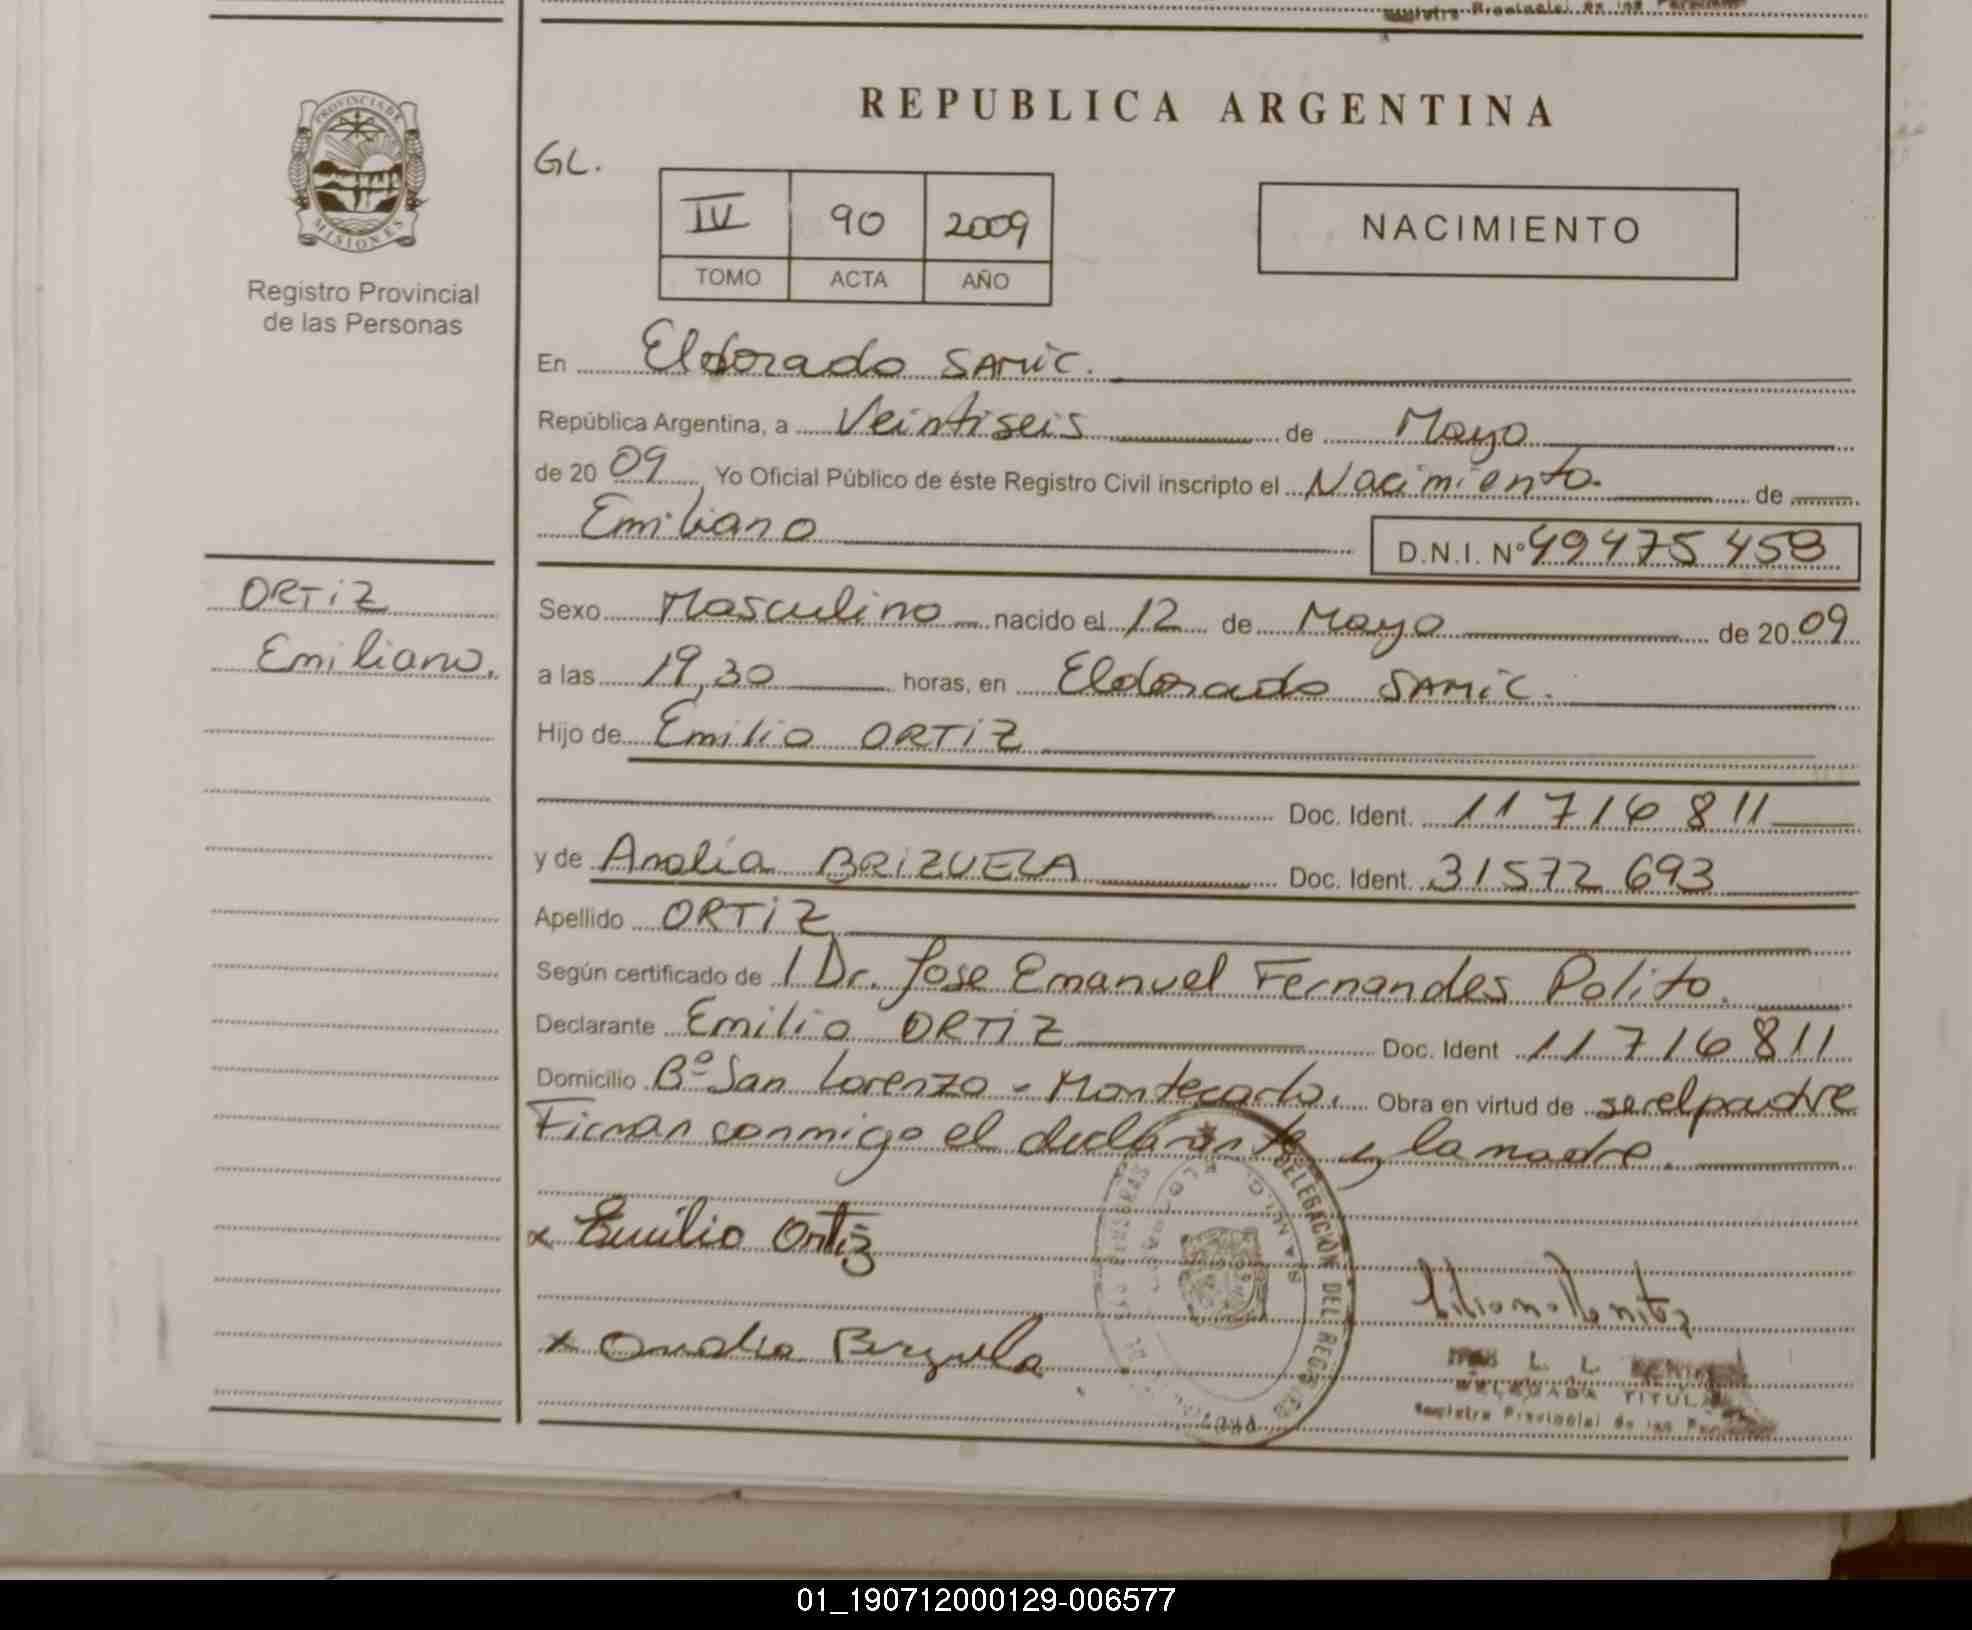 Registro Provincial de las
REPUBLICA ARGENTINA
PROVINCIA DE
MISIONES
Registro Provincial
de las Personas
GL.
IV 90 2009
TOMO ACTA AÑO
NACIMIENTO
En Eldorado SAMIC.
República Argentina, a Veintiseis de Mayo
de 20 09 Yo Oficial Público de éste Registro Civil inscripto el Nacimiento. de
Emiliano D.N.I. Nº 49475458
ORTIZ
Emiliano.
Sexo Masculino nacido el 12 de Mayo de 20 09
a las 19,30 horas, en Eldorado SAMIC.
Hijo de Emilio ORTIZ
Doc. Ident. 11 716 811
y de Analía BRIZUELA Doc. Ident. 31572 693
Apellido ORTIZ
Según certificado de / Dr. Jose Emanuel Fernandes Polito.
Declarante Emilio ORTIZ Doc. Ident 11716811
Domicilio Bº San Lorenzo - Montecarlo. Obra en virtud de ser el padre
Firman conmigo el declarante y la madre.
x Emilio Ortiz
x Analia Brizuela
DELEGACION DEL REGISTRO
L. L.
DELEGADA TITULAR
Registro Provincial de las Personas
01_190712000129-006577